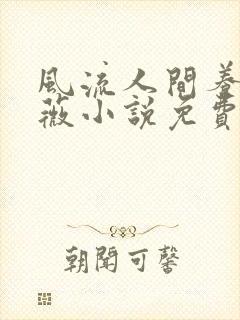 風流人間
薇小說免費
朝聞可馨